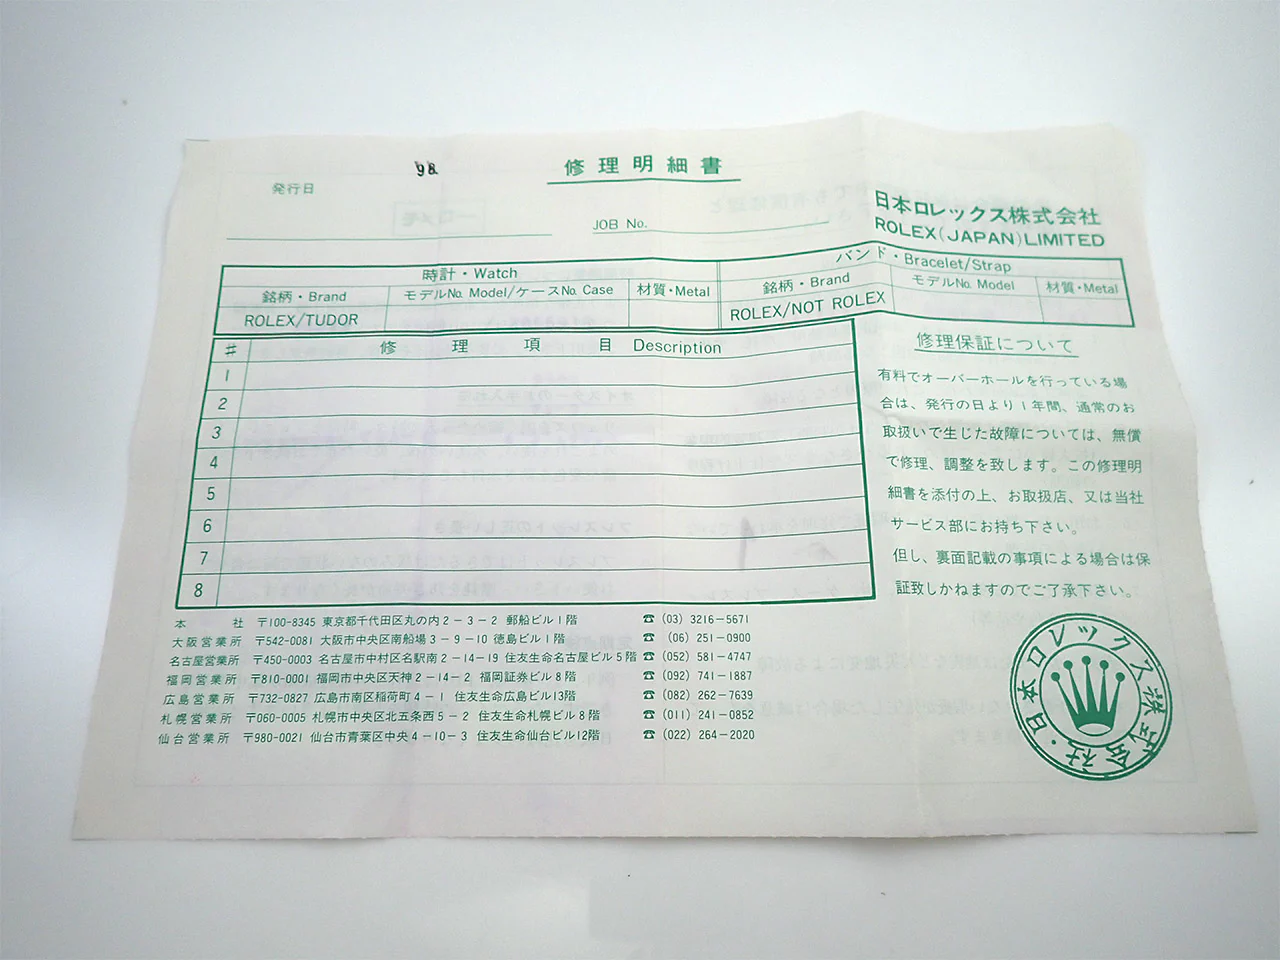 98
修理明細書
発行日
JOB No.
日本ロレックス株式会社
ROLEX(JAPAN)LIMITED
時計・Watch
バンド・Bracelet/Strap
銘柄・Brand モデルNo. Model/ケースNo. Case 材質・Metal 銘柄・Brand モデルNo. Model 材質・Metal
ROLEX/TUDOR ROLEX/NOT ROLEX
# 修理項目 Description
1
2
3
4
5
6
7
8
修理保証について
有料でオーバーホールを行っている場
合は、発行の日より1年間、通常のお
取扱いで生じた故障については、無償
で修理、調整を致します。この修理明
細書を添付の上、お取扱店、又は当社
サービス部にお持ち下さい。
但し、裏面記載の事項による場合は保
証致しかねますのでご了承下さい。
本社 〒100-8345 東京都千代田区丸の内2-3-2 郵船ビル1階 ☎(03)3216-5671
大阪営業所 〒542-0081 大阪市中央区南船場3-9-10 徳島ビル1階 ☎(06)251-0900
名古屋営業所 〒450-0003 名古屋市中村区名駅南2-14-19 住友生命名古屋ビル5階 ☎(052)581-4747
福岡営業所 〒810-0001 福岡市中央区天神2-14-2 福岡証券ビル8階 ☎(092)741-1887
広島営業所 〒732-0827 広島市南区稲荷町4-1 住友生命広島ビル13階 ☎(082)262-7639
札幌営業所 〒060-0005 札幌市中央区北五条西5-2 住友生命札幌ビル8階 ☎(011)241-0852
仙台営業所 〒980-0021 仙台市青葉区中央4-10-3 住友生命仙台ビル12階 ☎(022)264-2020
日本ロレックス株式会社・